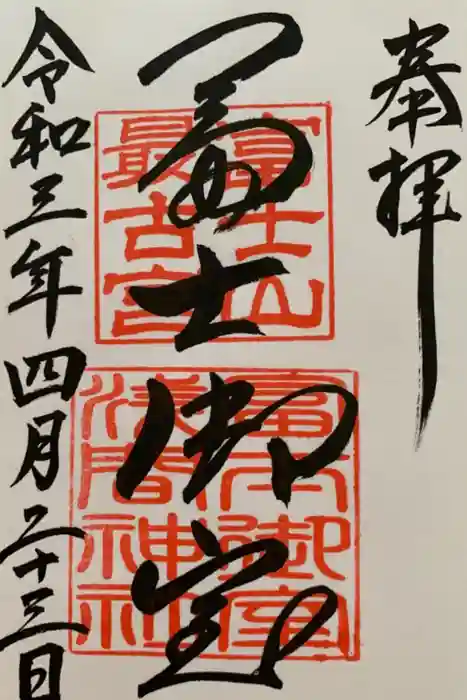 奉拝
冨士御室
富士山
最古宮
冨士御室
浅間神社
令和三年四月二十三日